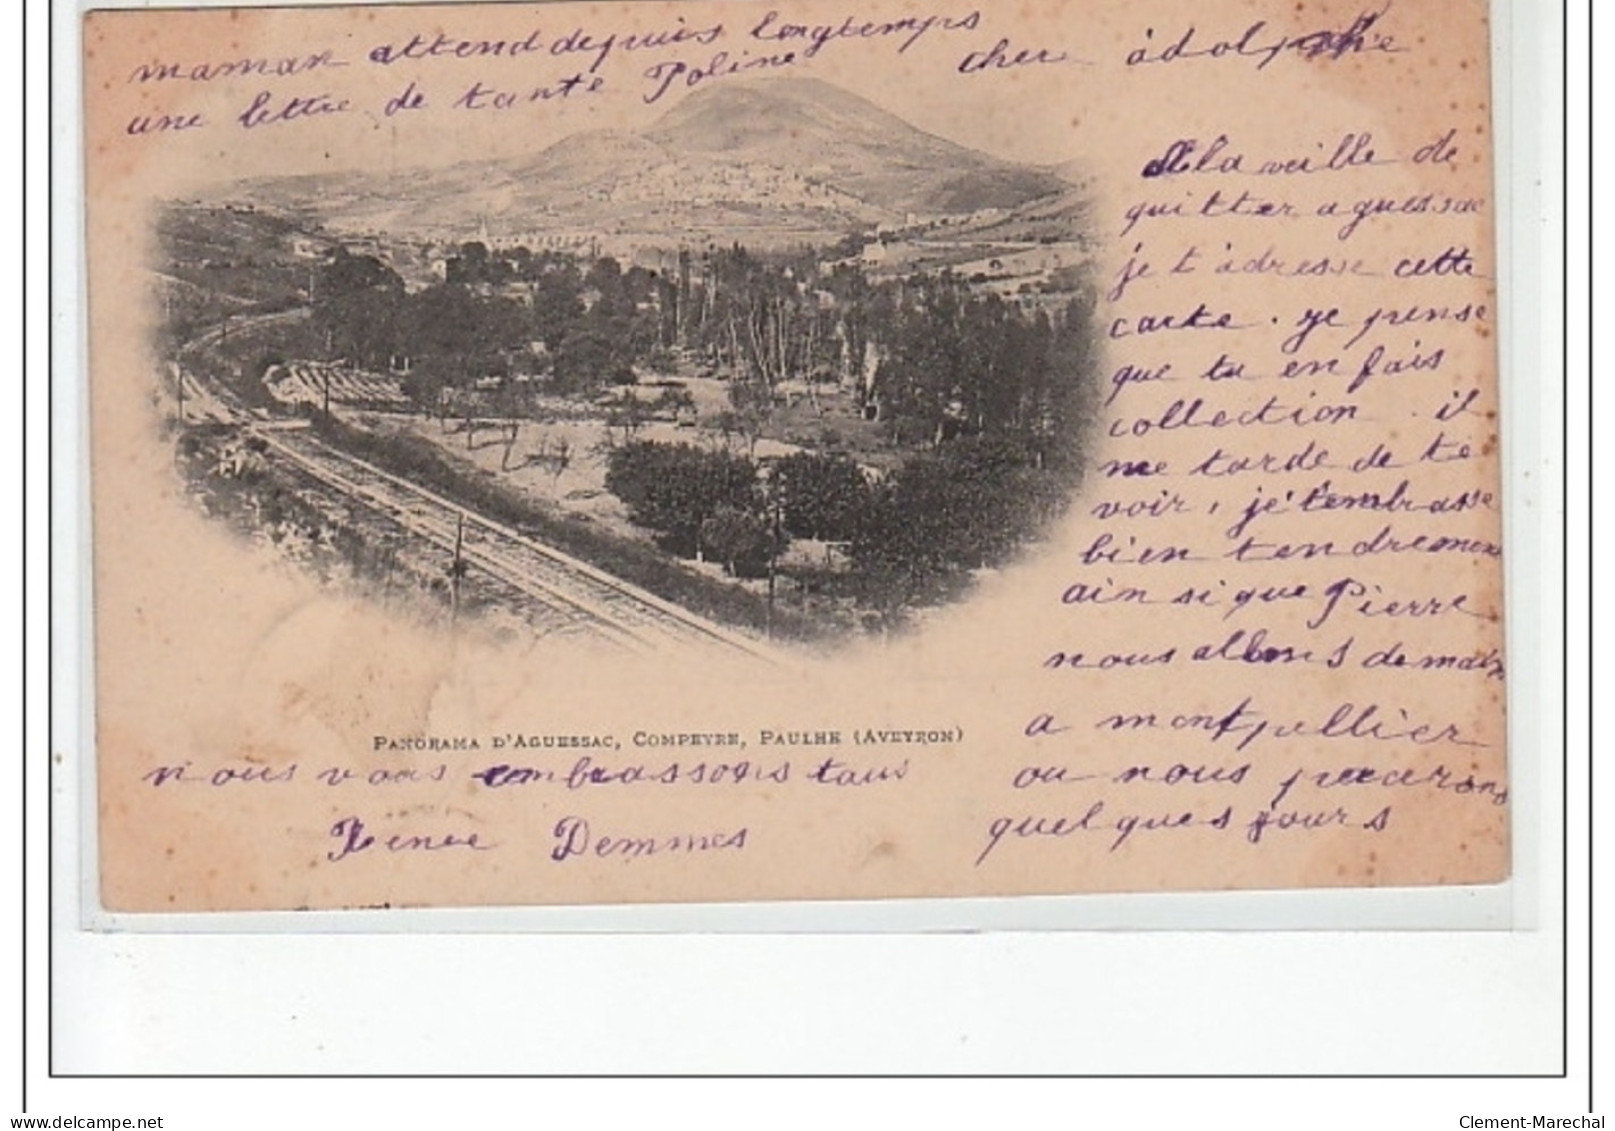 maman attend depuis longtemps
une lettre de tante Poline
cher àdolphe
A la veille de
quitter aguessac
je t'àdresse cette
carte. je pense
que tu en fais
collection. il
me tarde de te
voir, je t'embrasse
bien tendrement
ainsi que Pierre
nous allons demain
a montpellier
ou nous passerons
quelques jours
PANORAMA D'AGUESSAC, COMPEYRE, PAULHE (AVEYRON)
nous vous embrassons tous
Renee Demmes
delcampe.net
Clement-Marechal